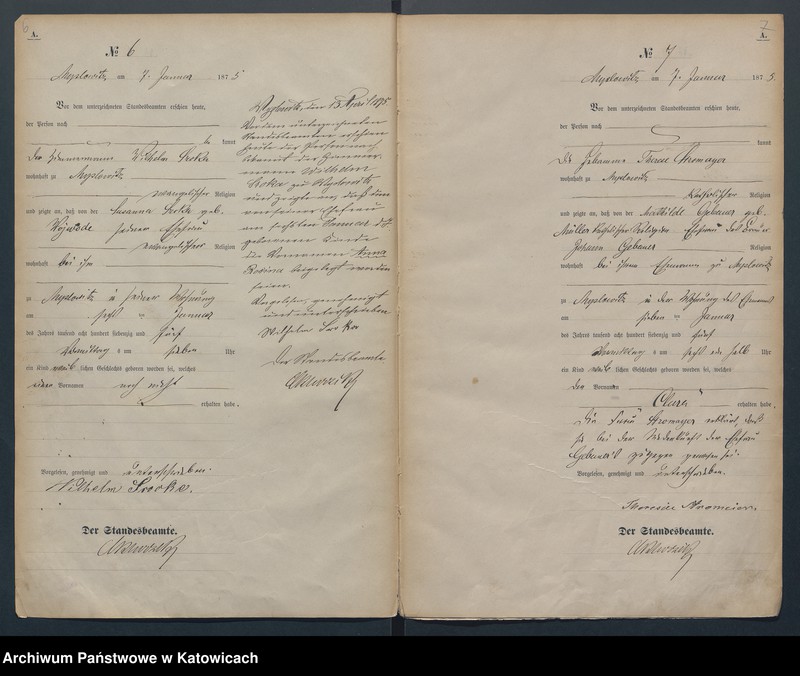 6
A.
№ 6
Myslowitz am 7. Januar 1875
Vor dem unterzeichneten Standesbeamten erschien heute,
der Person nach
be kannt
der Wilhelm Srokke
wohnhaft zu Myslowitz
evangelischer Religion
und zeigte an, daß von der Susanna Srokke geb.
seiner Ehefrau
evangelischer Religion
wohnhaft bei ihm
zu Myslowitz in seiner Wohnung
am sechs ten Januar
des Jahres tausend acht hundert siebenzig und fünf
Vormittag s um sieben Uhr
ein Kind weib lichen Geschlechts geboren worden sei, welches
einen Vornamen noch nicht
erhalten habe.
Vorgelesen, genehmigt und unterschrieben.
Wilhelm Srocka.
Der Standesbeamte.
Myslowitz, den 13 April 1875
Vor dem unterzeichneten
Standesbeamten erschien
heute der Person nach
bekannt der
Wilhelm
Sroka zu Myslowitz
und zeigte an, daß dem
von seiner Ehefrau
am sechsten Januar
geborenen Kinde
die Vornamen Anna
Rosina beigelegt worden
seien.
Vorgelesen, genehmigt
und unterschrieben
Wilhelm Srocka
Der Standesbeamte
7
A.
№ 7
Myslowitz am 7. Januar 1875.
Vor dem unterzeichneten Standesbeamten erschien heute,
der Person nach
kannt
die Hebamme Therese Stromayer
wohnhaft zu Myslowitz
katholischer Religion
und zeigte an, daß von der Mathilde Gebauer geb.
Müller katholischer Religion Ehefrau des
Johann Gebauer Religion
wohnhaft bei ihrem Ehemanne zu Myslowitz
zu Myslowitz in der Wohnung des Ehemannes
am sieben ten Januar
des Jahres tausend acht hundert siebenzig und fünf
Vormittag s um sechs ein halb Uhr
ein Kind weib lichen Geschlechts geboren worden sei, welches
den Vornamen
Clara
erhalten habe.
Die Frau Stromayer erklärt, daß
sie bei der Niederkunft der Ehefrau
Gebauer zugegen gewesen sei.
Vorgelesen, genehmigt und unterschrieben.
Der Standesbeamte.
Archiwum Państwowe w Katowicach